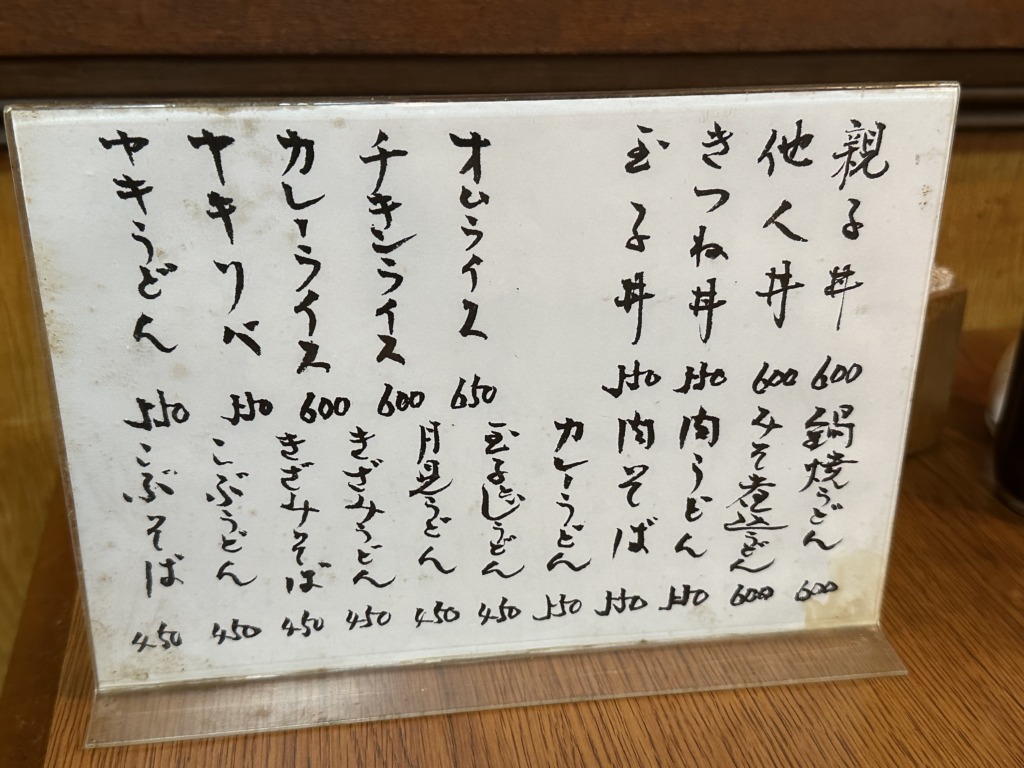 親子丼 600
他人丼 600
きつね丼 550
玉子丼 550
オムライス 650
チキンライス 600
カレーライス 600
ヤキリベ 550
ヤキうどん 550
鍋焼うどん 600
みそ煮込うどん 600
肉うどん 550
肉そば 550
カレーうどん 550
玉子とじうどん 450
月見うどん 450
きざみうどん 450
きざみそば 450
こぶうどん 450
こぶそば 450